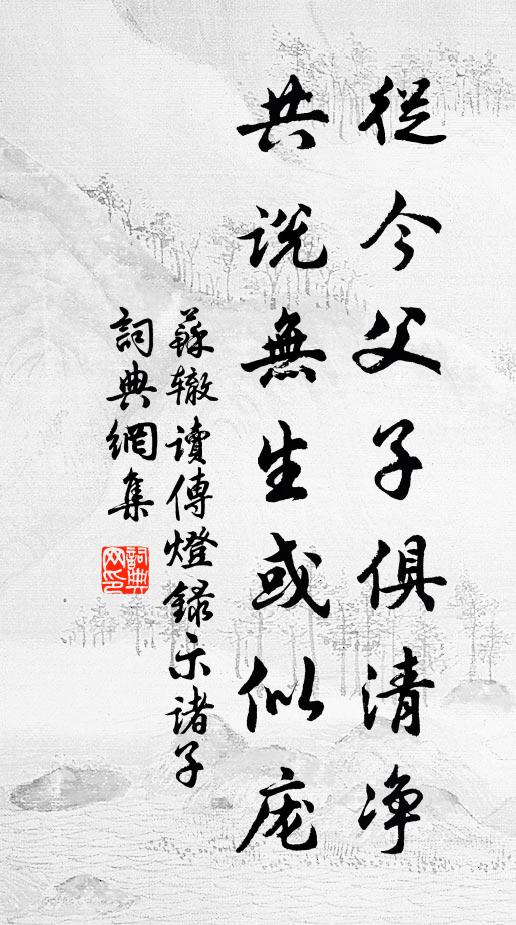 從今父子俱清净
共説無生或似庞
蘇辙讀傳燈錄示诸子
詞典網集
詞典
网印